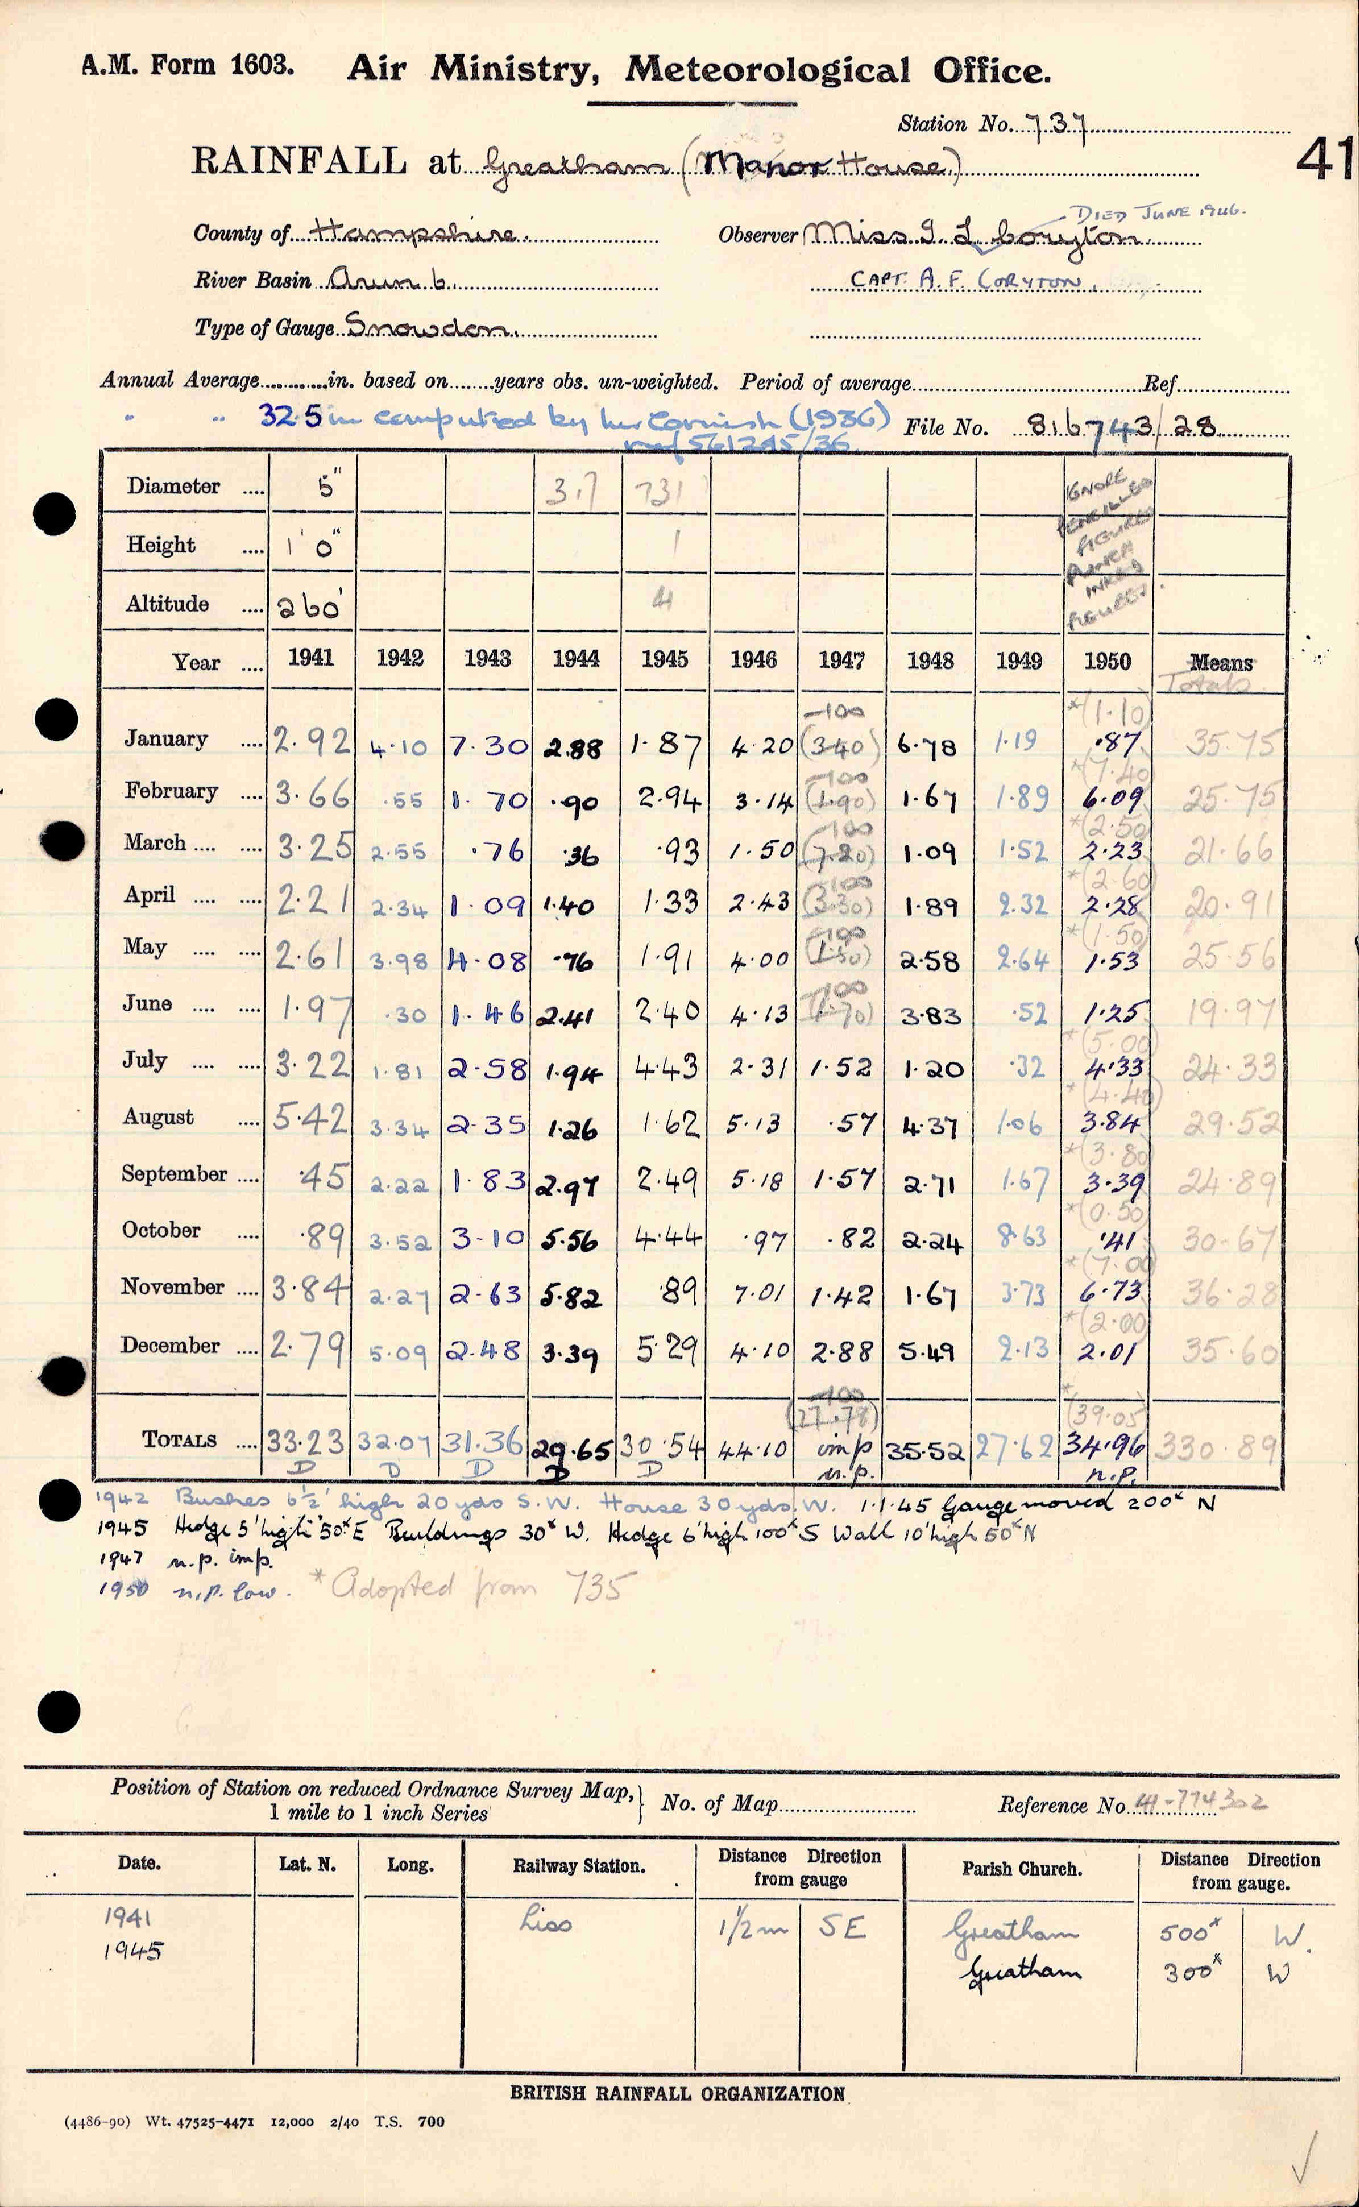 A.M. Form 1603. Air Ministry, Meteorological Office.
Station No. 737
41
RAINFALL at Greatham (Manor House)
DIED JUNE 1946.
County of Hampshire. Observer Miss I L Coryton
River Basin Arun 6. CAPT. A. F. CORYTON.
Type of Gauge Snowdon.
Annual Average............in. based on........years obs. un-weighted. Period of average............Ref............
" " 32.5 in computed by Cornish (1936) File No. 816743/28
ref 561245/36
Diameter .... 5" 3.7 731 IGNORE PENCILLED FIGURES PUNCH INKED FIGURES.
Height .... 1' 0" 1
Altitude .... 260' 4
Year .... 1941 1942 1943 1944 1945 1946 1947 1948 1949 1950 Means
Totals
-100 *(1.10)
January .... 2.92 4.10 7.30 2.88 1.87 4.20 (3.40) 6.78 1.19 .87 35.75
-100 *(7.40)
February .... 3.66 .55 1.70 .90 2.94 3.14 (1.90) 1.67 1.89 6.09 25.75
-100 *(2.50)
March .... .... 3.25 2.55 .76 .36 .93 1.50 (7.20) 1.09 1.52 2.23 21.66
-100 *(2.60)
April .... .... 2.21 2.34 1.09 1.40 1.33 2.43 (3.30) 1.89 2.32 2.28 20.91
-100 *(1.50)
May .... .... 2.61 3.98 4.08 .76 1.91 4.00 (1.50) 2.58 2.64 1.53 25.56
-100
June .... .... 1.97 .30 1.46 2.41 2.40 4.13 (1.70) 3.83 .52 1.25 19.97
*(5.00)
July .... .... 3.22 1.81 2.58 1.94 4.43 2.31 1.52 1.20 .32 4.33 24.33
*(4.40)
August .... 5.42 3.34 2.35 1.26 1.62 5.13 .57 4.37 1.06 3.84 29.52
*(3.80)
September .... .45 2.22 1.83 2.97 2.49 5.18 1.57 2.71 1.67 3.39 24.89
*(0.50)
October .... .89 3.52 3.10 5.56 4.44 .97 .82 2.24 8.63 .41 30.67
*(7.00)
November .... 3.84 2.27 2.63 5.82 .89 7.01 1.42 1.67 3.73 6.73 36.28
*(2.00)
December .... 2.79 5.09 2.48 3.39 5.29 4.10 2.88 5.49 2.13 2.01 35.60
-100 *
(27.78) (39.05)
TOTALS .... 33.23 32.07 31.36 29.65 30.54 44.10 imp 35.52 27.62 34.96 330.89
D D D D D n.p. n.p.
1942 Bushes 6½' high 20 yds S.W. House 30 yds. W. 1.1.45 Gauge moved 200ˣ N
1945 Hedge 5' high 50ˣ E Buildings 30ˣ W. Hedge 6' high 100ˣ S Wall 10' high 50ˣ N
1947 n.p. imp.
1950 n.p. low. * Adopted from 735
Position of Station on reduced Ordnance Survey Map,
1 mile to 1 inch Series } No. of Map............ Reference No. 41-774302
Date. Lat. N. Long. Railway Station. Distance Direction from gauge Parish Church. Distance Direction from gauge.
1941 Liss 1½m SE Greatham 500ˣ W.
1945 Greatham 300ˣ W
BRITISH RAINFALL ORGANIZATION
(4486-90) Wt. 47525-4471 12,000 2/40 T.S. 700